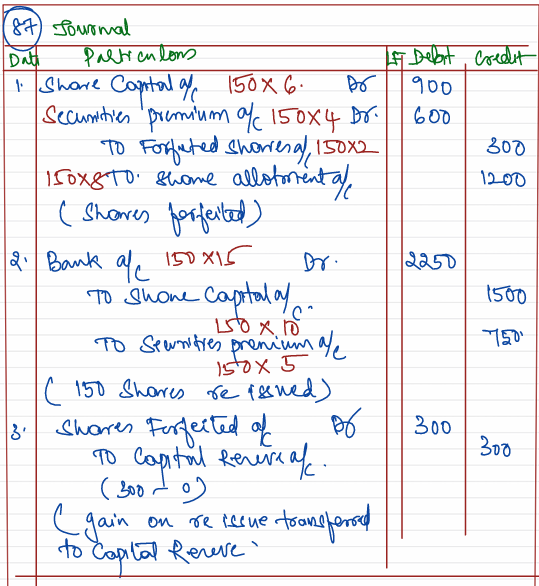 87 Journal
Date Particulars LF Debit Credit
1. Share Capital a/c 150 X 6. Dr 900
Securities premium a/c 150 X 4 Dr. 600
To Forfeited Shares a/c 150X2 300
150X8 To. Share allotment a/c 1200
( Shares forfeited )
2. Bank a/c 150 X15 Dr. 2250
To Share Capital a/c. 1500
150 X 10
To Securities premium a/c 750.
150 X 5
( 150 Shares re issued )
3. Shares Forfeited a/c Dr 300
To Capital Reserve a/c. 300
( 300 - 0 )
( gain on re issue transferred
to Capital Reserve